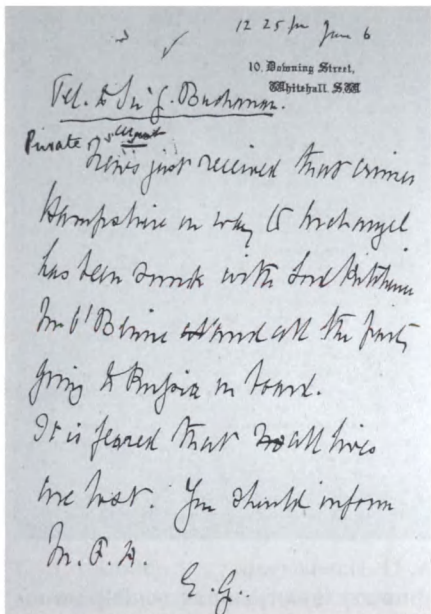 12 25 pm June 6
10, Downing Street,
Whitehall. S.W.
Tel. to Sir G. Buchanan.
Private & urgent
News just received that cruiser
Hampshire on way to Archangel
has been sunk with Lord Kitchener
Mr O'Beirne and all the party
going to Russia on board.
It is feared that all lives
are lost. You should inform
M. F. A.
E. G.